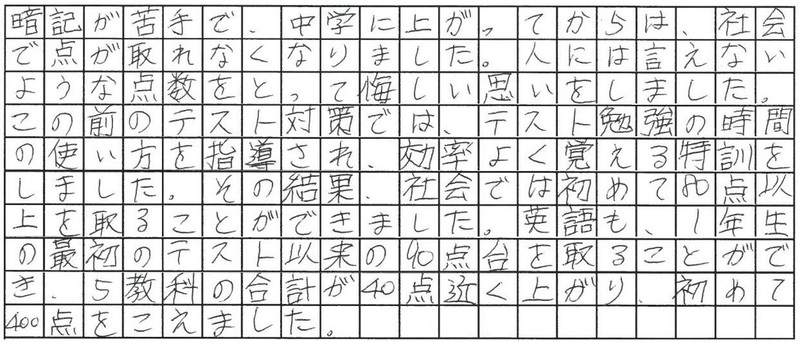 暗記が苦手で、中学に上がってからは、社会
で点が取れなくなりました。人には言えない
ような点数をとって悔しい思いをしました。
この前のテスト対策では、テスト勉強の時間
の使い方を指導され、効率よく覚える特訓を
しました。その結果、社会では初めて80点以
上を取ることができました。英語も、1年生
の最初のテスト以来の90点台を取ることがで
き、5教科の合計が40点近く上がり、初めて
400点をこえました。